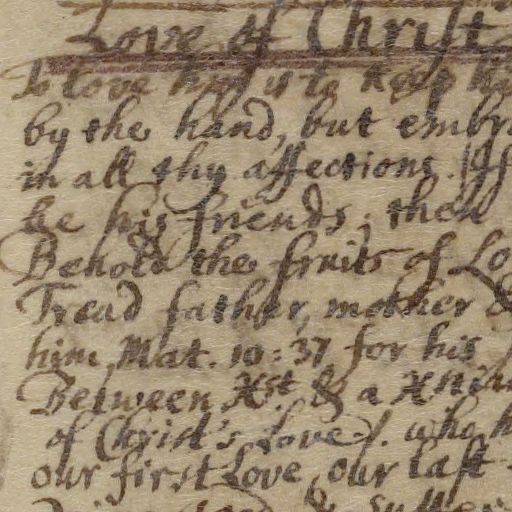 Love of Christ
To Love him is to keep
by the hand, but embr
in all thy affections. If
be his friends, then
Behold the fruits of Lo
Tread father, mother &
him, Mat. 10: 37 for his
Between Xst. & a Xtian
of Christ's Love /. who
our first Love, our last